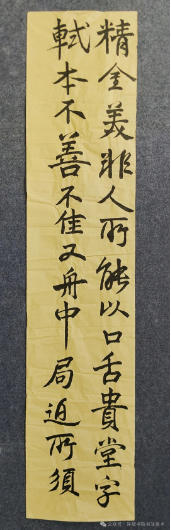 精金美非人所能以口舌貴堂字
軾本不善不佳又舟中局迫所須
公众号